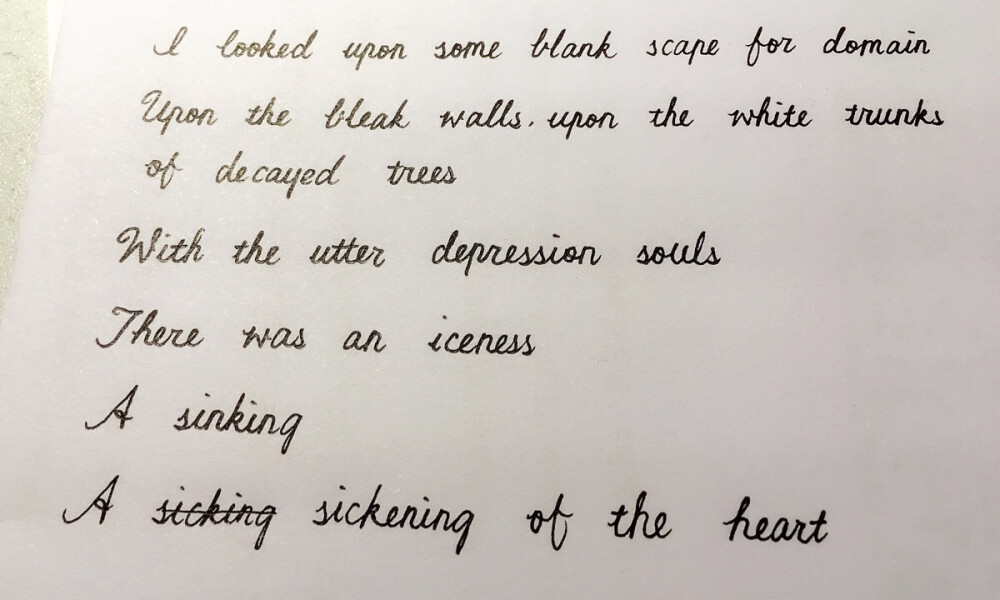 I looked upon some blank scape for domain
Upon the bleak walls. upon the white trunks
of decayed trees
With the utter depression souls
There was an iceness
A sinking
A sicking sickening of the heart